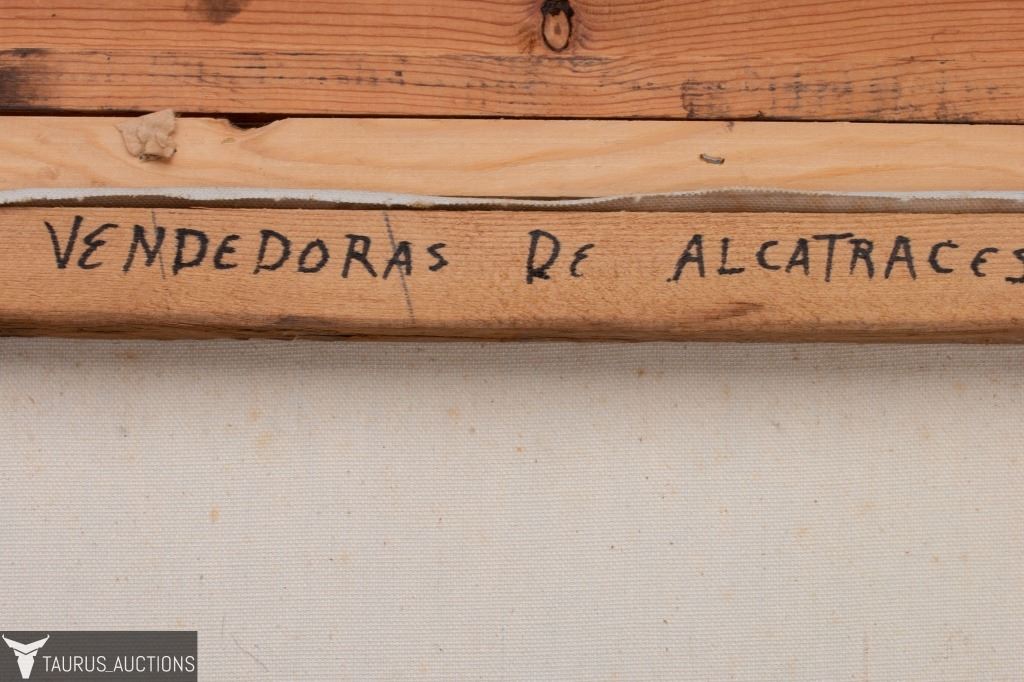 VENDEDORAS DE ALCATRACES
TAURUS_AUCTIONS